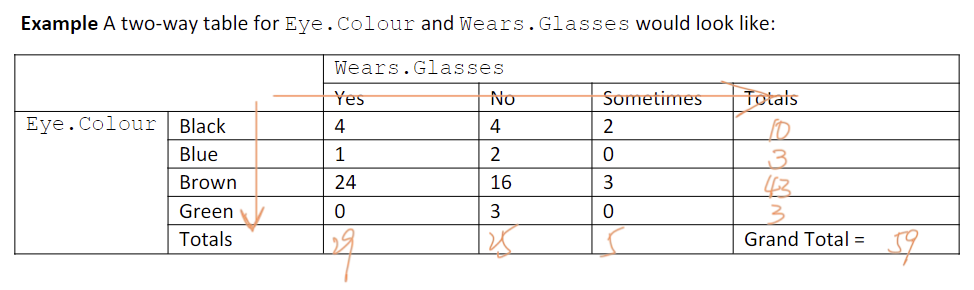 Example A two-way table for Eye.Colour and Wears.Glasses would look like:
Wears.Glasses
Yes No Sometimes Totals
Eye.Colour Black 4 4 2 10
Blue 1 2 0 3
Brown 24 16 3 43
Green 0 3 0 3
Totals 29 25 5 Grand Total = 59